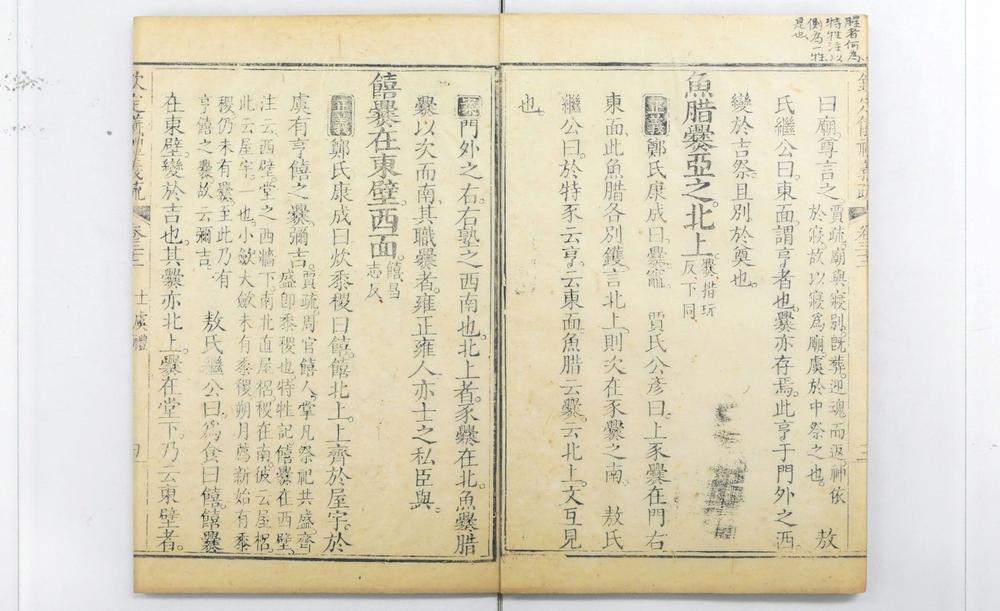 腥者何為
特牲注以
側為一牲
是也
欽定儀禮義疏 卷三三
曰廟尊言之賈疏廟與寢別既葬迎魂而返神依
於寢故以寢為廟虞於中祭之也 敖
氏繼公曰東面謂亨者也爨亦存焉此亨于門外之西
變於吉祭且別於奠也
魚腊爨亞之北上爨措玩
反下同
正義鄭氏康成曰爨竈 賈氏公彥曰上豕爨在門右
東面此魚腊各別鑊言北上則次在豕爨之南 敖氏
繼公曰於特豕云亨云東面魚腊云爨云北上文互見
也
案門外之右右塾之西南也北上者豕爨在北魚爨腊
爨以次而南其職爨者雍正雍人亦士之私臣與
饎爨在東壁西面饎昌
志反
正義鄭氏康成曰炊黍稷曰饎饎北上上齊於屋宇於
虞有亨饎之爨彌吉賈疏周官饎人掌凡祭祀共盛齊
盛即黍稷也特牲記饎爨在西壁
注云西壁堂之西牆下南北直屋梠稷在南彼云屋梠
此云屋宇一也小斂大斂未有黍稷朔月薦新始有黍
稷仍未有爨至此乃有
亨饎之爨故云彌吉 敖氏繼公曰為食曰饎饎爨
在東壁變於吉也其爨亦北上爨在堂下乃云東壁者
欽定儀禮義疏 卷三三 士虞禮 四